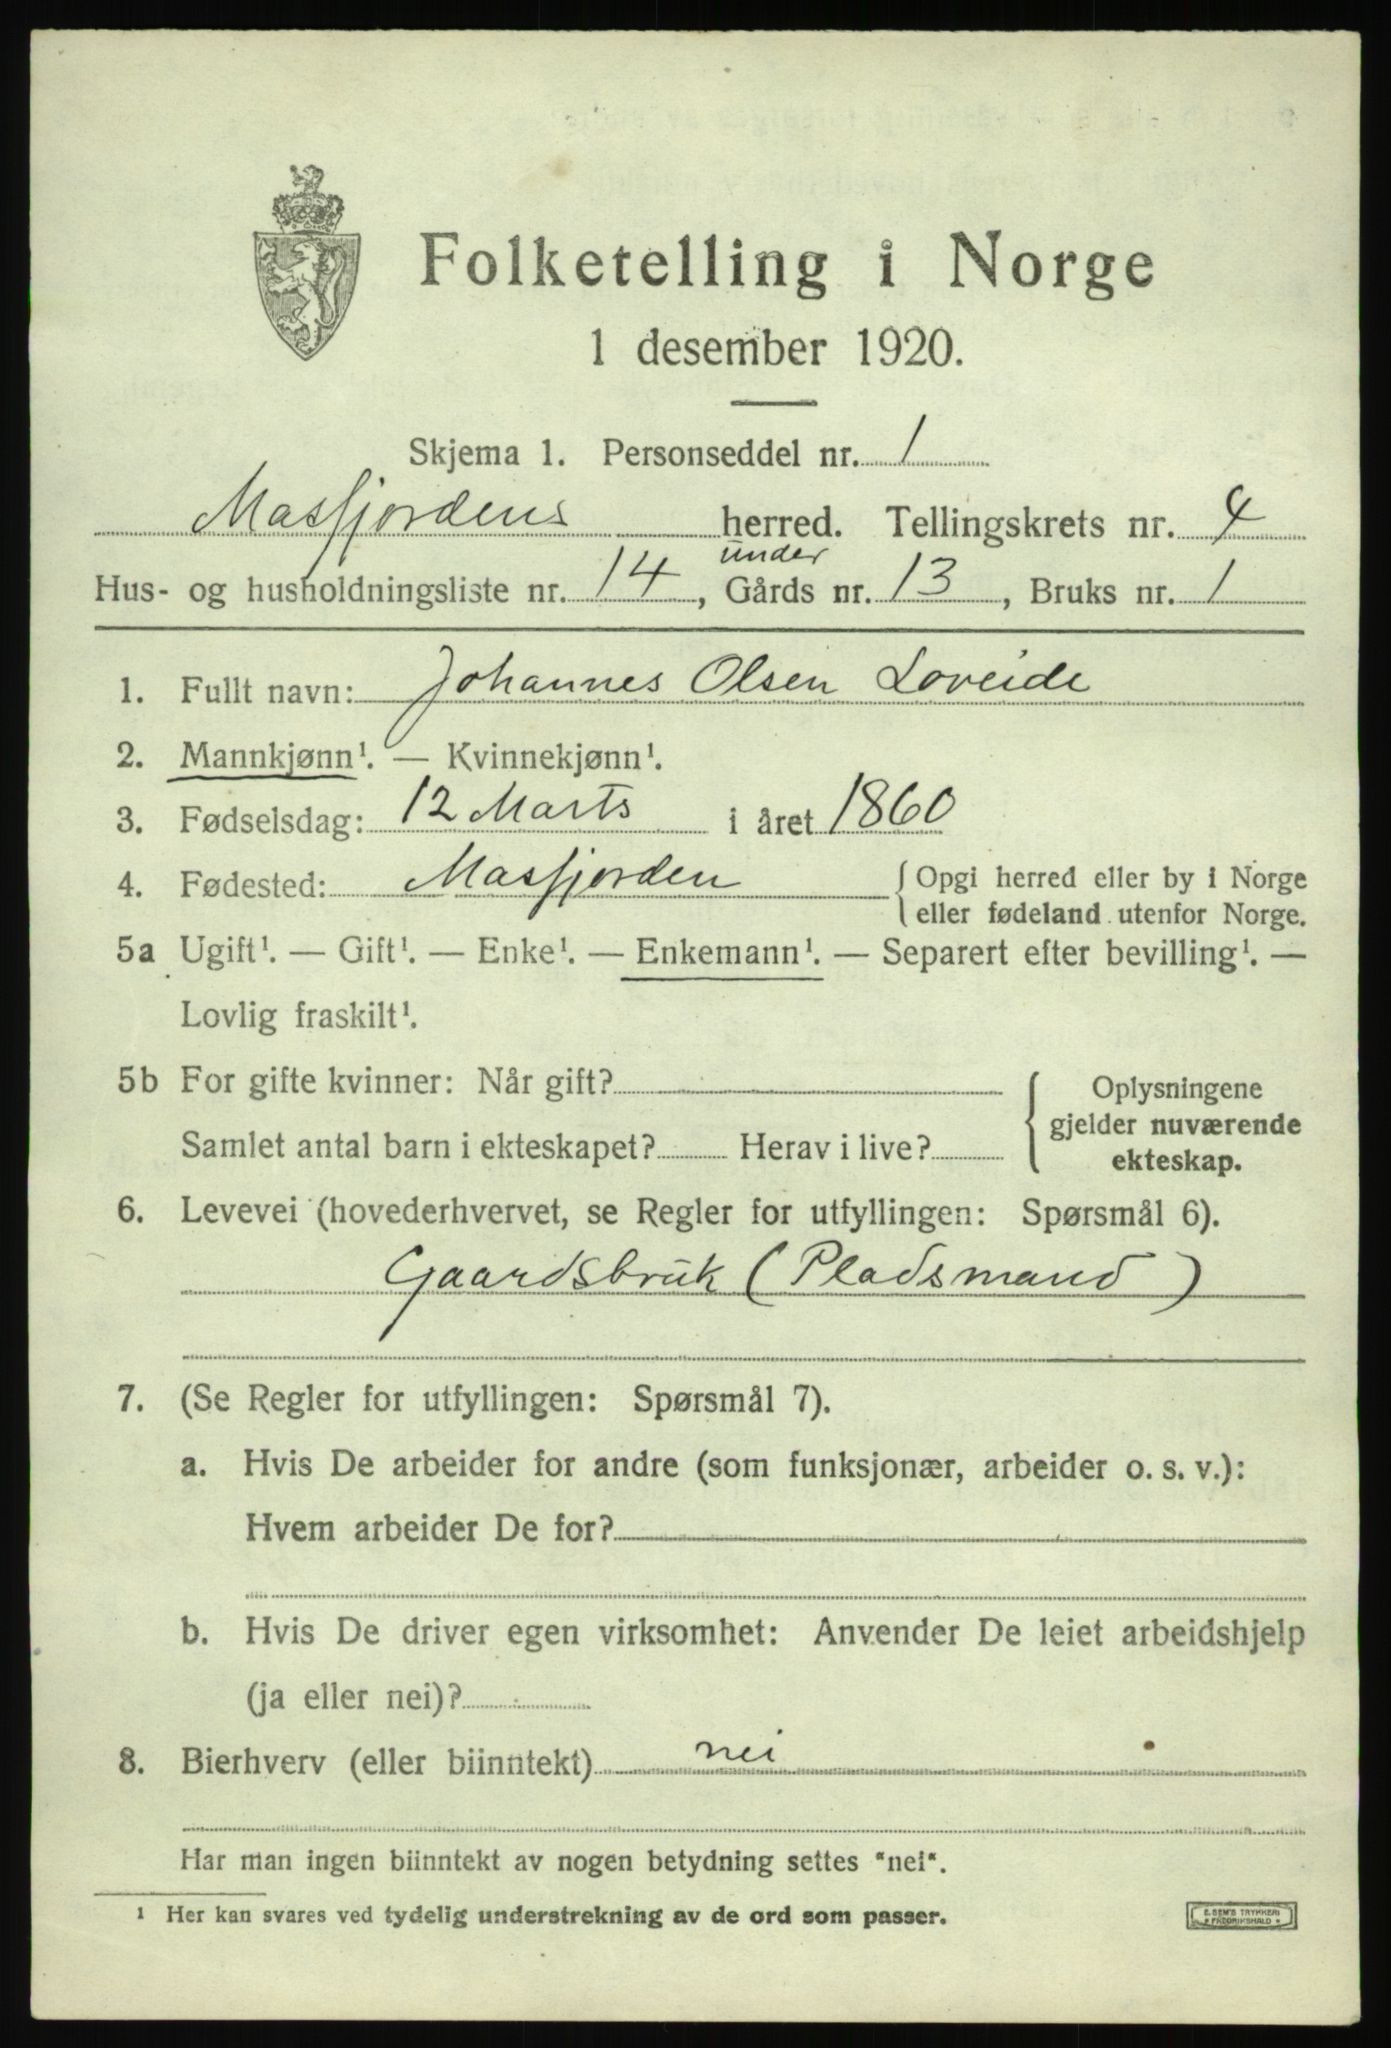 Folketelling i Norge
1 desember 1920.
Skjema 1. Personseddel nr. 1
Masfjordens herred. Tellingskrets nr. 4
under
Hus- og husholdningsliste nr. 14, Gårds nr. 13, Bruks nr. 1
1. Fullt navn: Johannes Olsen Loveide
2. Mannkjønn¹. — Kvinnekjønn¹.
3. Fødselsdag: 12 Marts i året 1860
4. Fødested: Masfjorden { Opgi herred eller by i Norge
eller fødeland utenfor Norge.
5a Ugift¹. — Gift¹. — Enke¹. — Enkemann¹. — Separert efter bevilling¹. —
Lovlig fraskilt¹.
5b For gifte kvinner: Når gift?
Samlet antal barn i ekteskapet? Herav i live?
Oplysningene
gjelder nuværende
ekteskap.
6. Levevei (hovederhvervet, se Regler for utfyllingen: Spørsmål 6).
Gaardsbruk (Pladsmand)
7. (Se Regler for utfyllingen: Spørsmål 7).
a. Hvis De arbeider for andre (som funksjonær, arbeider o. s. v.):
Hvem arbeider De for?
b. Hvis De driver egen virksomhet: Anvender De leiet arbeidshjelp
(ja eller nei)?
8. Bierhverv (eller biinntekt) nei
Har man ingen biinntekt av nogen betydning settes "nei".
¹ Her kan svares ved tydelig understrekning av de ord som passer.
E. SEM'S TRYKKERI
* FREDRIKSHALD *